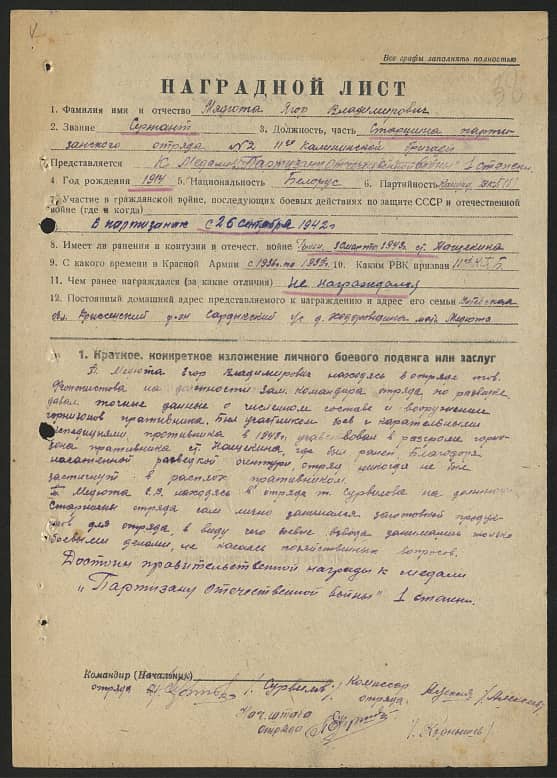 Все графы заполнять полностью
НАГРАДНОЙ ЛИСТ
1. Фамилия имя и отчество Мядюта Ягор Владимирович
2. Звание Сержант 3. Должность, часть Старшина парти-
занского отряда №2 11ой Калининской бригады
Представляется К Медали „Партизану Отечественной войны" 1 степени
4. Год рождения 1914 5. Национальность Белорус 6. Партийность
7. Участие в гражданской войне, последующих боевых действиях по защите СССР и отечественной
войне (где и когда)
В партизанах с 26 октября 1942 г
8. Имеет ли ранения и контузии в отечест. войне 30 марта 1943г. ст. Нащекина
9. С какого времени в Красной Армии с 1936г. по 1938г. 10. Каким РВК призван
11. Чем ранее награждался (за какие отличия) Не награждался
12. Постоянный домашний адрес представляемого к награждению и адрес его семьи Витебская
обл. Дриссенский р-он Сарьинский с/с д. мать Медюта
1. Краткое, конкретное изложение личного боевого подвига или заслуг
Т. Медюта Ягор Владимирович находясь в отряде тов.
на должности зам. командира отряда по разведке
давал точные данные о численном составе и вооружением
гарнизонов противника. Был участником боев с карательными
экспедициями противника в 1943г. участвовал в разгроме гарни-
зона противника ст. Нащекина, где был ранен. Благодоря
налаженной развецкой отряд никогда не был
застигнут в расплох противником.
Т. Медюта Е.В. находясь в отряде т. Сурвилова на должности
Старшины отряда сам лично занимался заготовкой продук-
тов для отряда, в виду чего боевые взвода занимались только
боевыми делами, не касаясь хозяйственных вопросов.
Достоин правительственной награды к медали
„Партизану Отечественной войны" 1 степени.
Командир (Начальник)
отряда /Сурвилов/ Комиссар
отряда
Нач. штаба
отряда